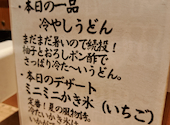 ・本日の一品
冷やしうどん
まだまだ暑いので続投!
柚子とおろしポン酢で
さっぱり冷た〜いうどん。
・本日のデザート
ミニミニかき氷(いちご)
定番!夏の風物詩。
冷たいかき氷は